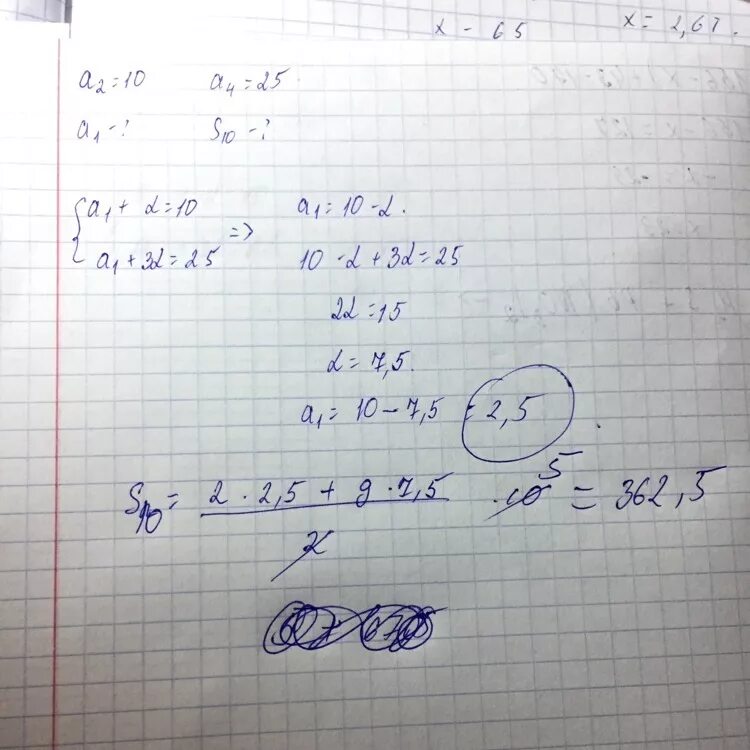 x - 65 x = 2,67.
a₂=10 a₄=25.
a₁ -? S₁₀ -?
{a₁ + d=10 => a₁=10-d.
a₁+3d=25 10-d+3d=25
2d=15
d=7,5.
a₁= 10-7,5 = 2,5.
S₁₀ = 2·2,5 + 9·7,5 / 2 · 10 5 = 362,5